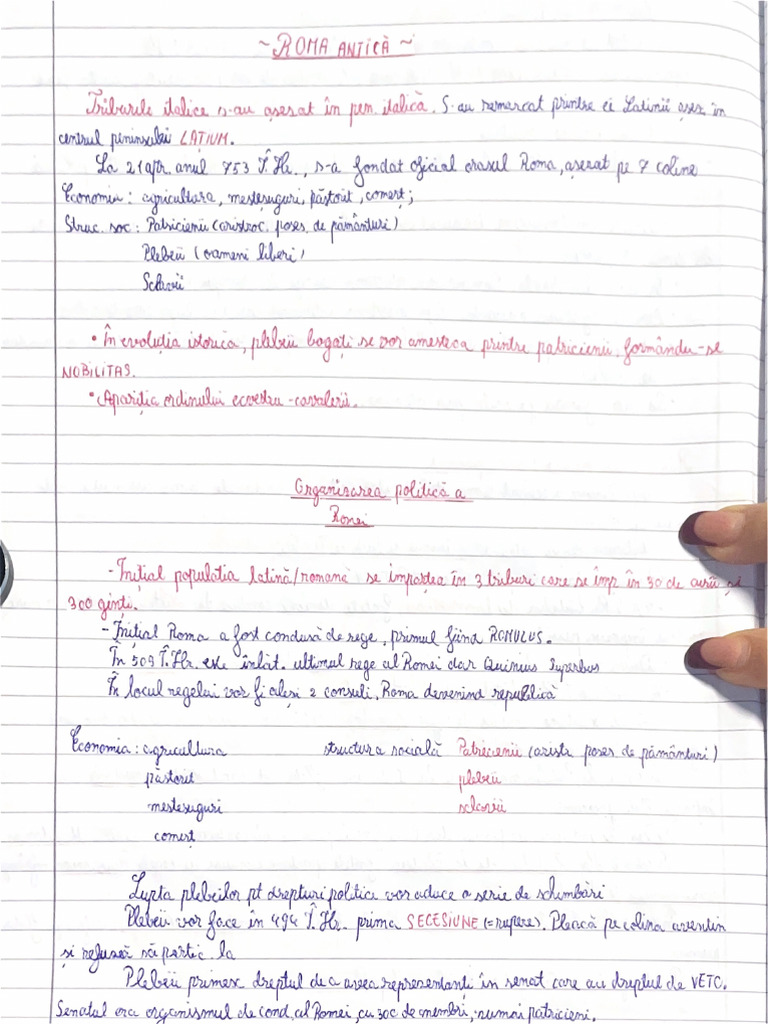 ~ ROMA ANTICĂ ~
Triburile italice s-au așezat în pen. italică. S-au remarcat printre ei Latinii așez în
centrul peninsulei LATIUM.
La 21 apr. anul 753 Î.Hr., s-a fondat oficial orasul Roma, așezat pe 7 coline
Economia: agricultura, meșteșuguri, păstorit, comerț;
Struc. soc: Patricienii (aristroc. poses. de pământuri)
Plebeii (oameni liberi)
Sclavii
• În evoluția istorica, plebeii bogați se vor amesteca printre patricienii, formându-se
NOBILITAS.
• Apariția ordinului ecvestru-cavalerii.
Organizarea politică a
Romei
- Inițial populatia latină/romană se împărțea în 3 triburi care se împ în 30 de curii și
300 ginți.
- Inițial Roma a fost condusă de rege, primul fiind ROMULUS.
În 509 Î.Hr. este înlăt. ultimul rege al Romei Superbus
În locul regelui vor fi aleși 2 consuli, Roma devenind republică
Economia: agricultura structura socială Patricienii (aristr poses de pământuri)
păstorit plebeii
mestesuguri sclavii
comerț
Lupta plebeilor pt drepturi politice vor aduce o serie de schimbări
Plebeii vor face în 494 Î.Hr. prima SECESIUNE (=rupere). Pleacă pe colina aventin
și refuzară să partic la
Plebeii primesc dreptul de a avea reprezentanți în senat care au dreptul de VETO.
Senatul era organismul de cond. al Romei, cu 300 de membri, numai patricieni.